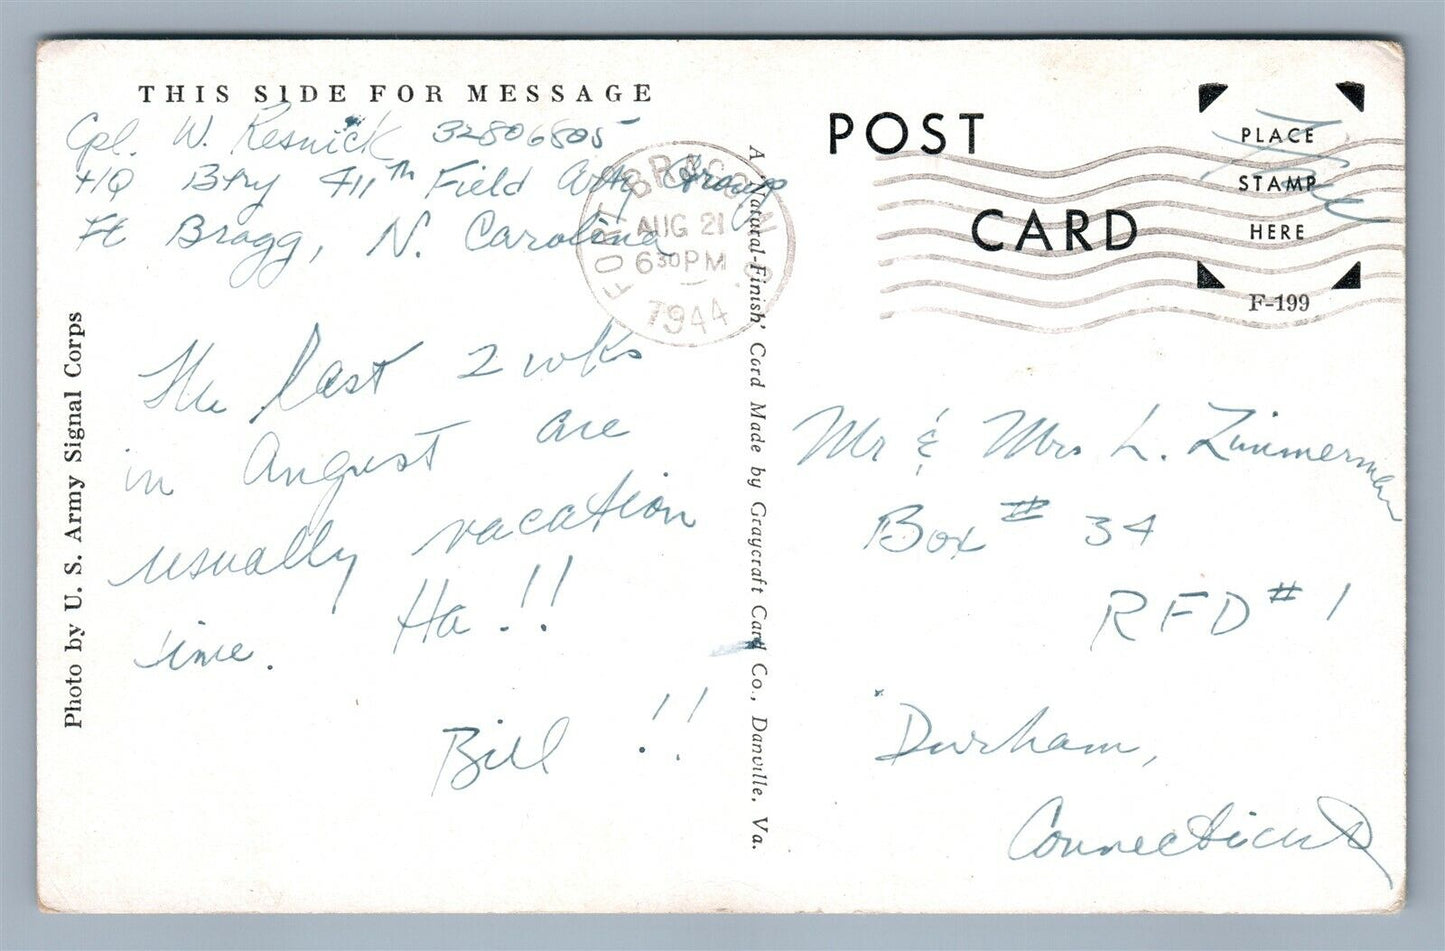 THIS SIDE FOR MESSAGE
Cpl. W. Resnick 32806805
HQ Btry 411th Field Arty Group
Ft Bragg, N. Carolina
The last 2 wks
in August are
usually vacation
time. Ha!!
Bill !!
Photo by U. S. Army Signal Corps
FORT BRAGG N. C.
AUG 21
630PM
1944
A 'Natural-Finish' Card Made by Graycraft Card Co., Danville, Va.
POST
CARD
Free
PLACE
STAMP
HERE
F-199
Mr & Mrs L. Zimmerman
Box # 34
RFD # 1
Durham,
Connecticut